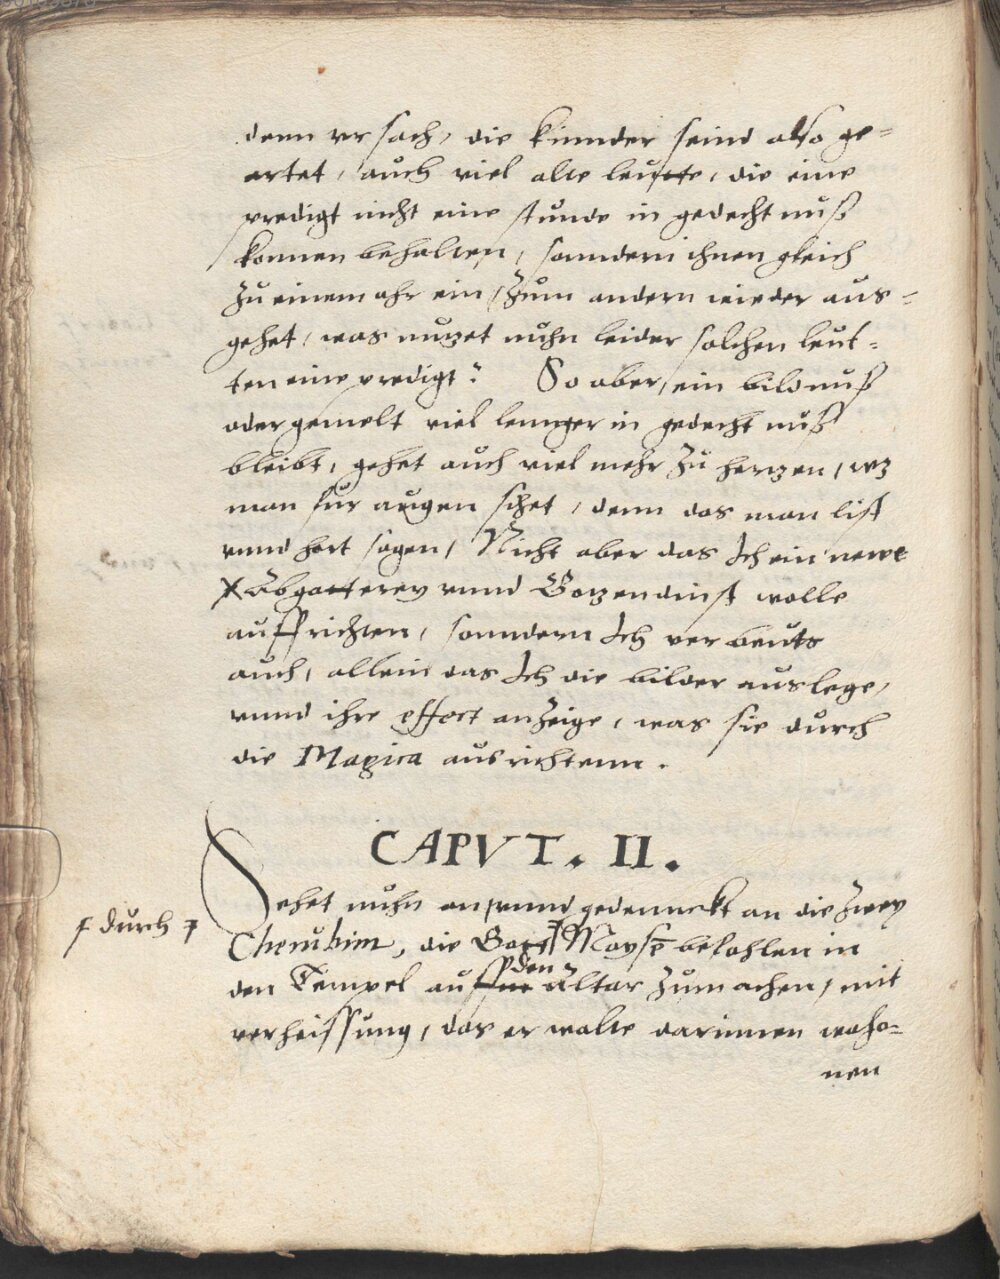 denn ursach, die kinnder seind also ge=
artet, auch viel alte leutte, die eine
predigt nicht eine stunde in gedechtnuß
konnen behalten, sonndern ihnen gleich
zu einem ohr ein, zum andern wieder aus=
gehet, was nutzet nuhn leider solchen leut=
ten eine predigt? So aber ein bildnuß
oder gemelt viel lennger in gedechtnuß
bleibt, gehet auch viel mehr zu hertzen, wz
man fur augen sihet, denn das man list
unnd hort sagen, Nicht aber das Ich ein newe
Abgotterey unnd Gotzendinst wolle
auffrichten, sonndern Ich verbeuts
auch, allein das Ich die bilder auslege,
unnd ihre effect anzeige, was sie durch
die Magica ausrichtenn.
CAPVT. II.
Sehet nuhn an, unnd gedennckt an die zwey
durch
Cherubim, die Gott Moyse befohlen in
den
den Tempel auff Altar zumachen, mit
verheissung, das er wolte darinnen woho=
nen